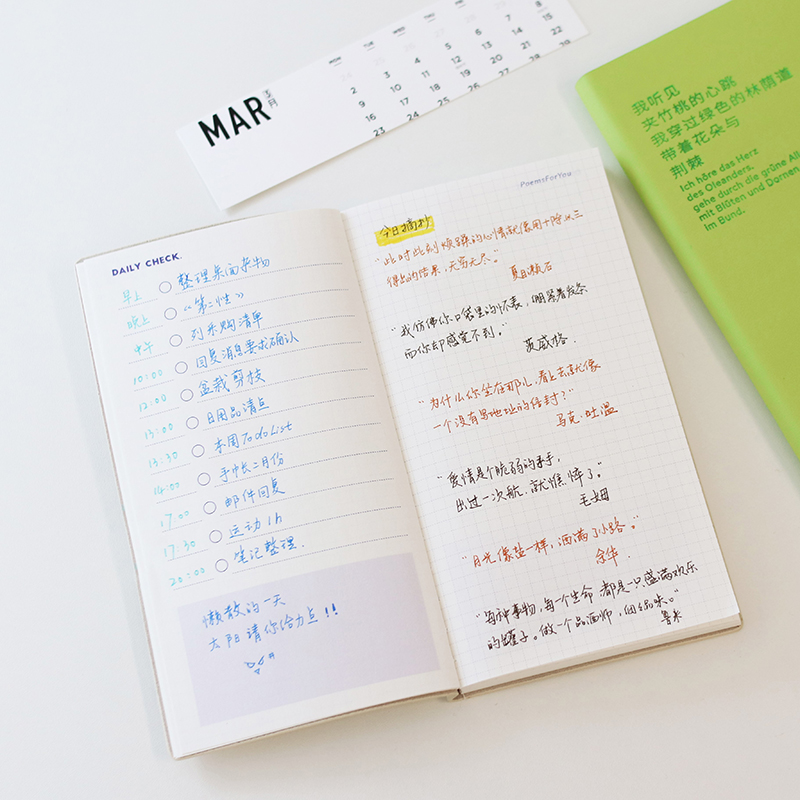 MAR
三月
MON
TUE
WED
THU
FRI
2
3
4
5
6
7
8
9
10
11
12
13
14
15
16
23
我听见
夹竹桃的心跳
我穿过绿色的林荫道
带着花朵与
荆棘
Ich höre das Herz
des Oleanders,
gehe durch die grüne All
mit Blüten und Dornen
im Bund.
DAILY CHECK.
早上 整理桌面杂物
晚上 《第二性》
中午 列采购清单
10:00 回复消息要求确认
12:00 盆栽剪枝
13:00 日用品清点
13:30 本周 To do List
14:00 手帐二月份
17:00 邮件回复
17:30 运动 1h
20:00 笔记整理.
懒散的一天
太阳请你给力点!!
PoemsForYou
今日摘抄
“此时此刻烦躁的心情就像用十除以三
得出的结果,无穷无尽。”
夏目漱石
“我仿佛你口袋里的怀表,绷紧着发条
而你却感觉不到。”
茨威格.
“为什么你坐在那儿,看上去就像
一个没有写地址的信封?”
马克·吐温
“爱情是个脆弱的水手,
出过一次航,就憔悴了。”
毛姆
“月光像盐一样,洒满了小路。”
余华.
“每种事物,每个生命都是一只盛满欢乐
的罐子。做一个品酒师,细细品味。”
鲁米